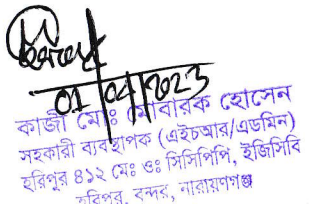 01/04/2023
কাজী মোঃ মোবারক হোসেন
সহকারী ব্যবস্থাপক (এইচআর/এডমিন)
হরিপুর ৪১২ মেঃ ওঃ সিসিপিপি, ইজিসিবি
হরিপুর, বন্দর, নারায়ণগঞ্জ